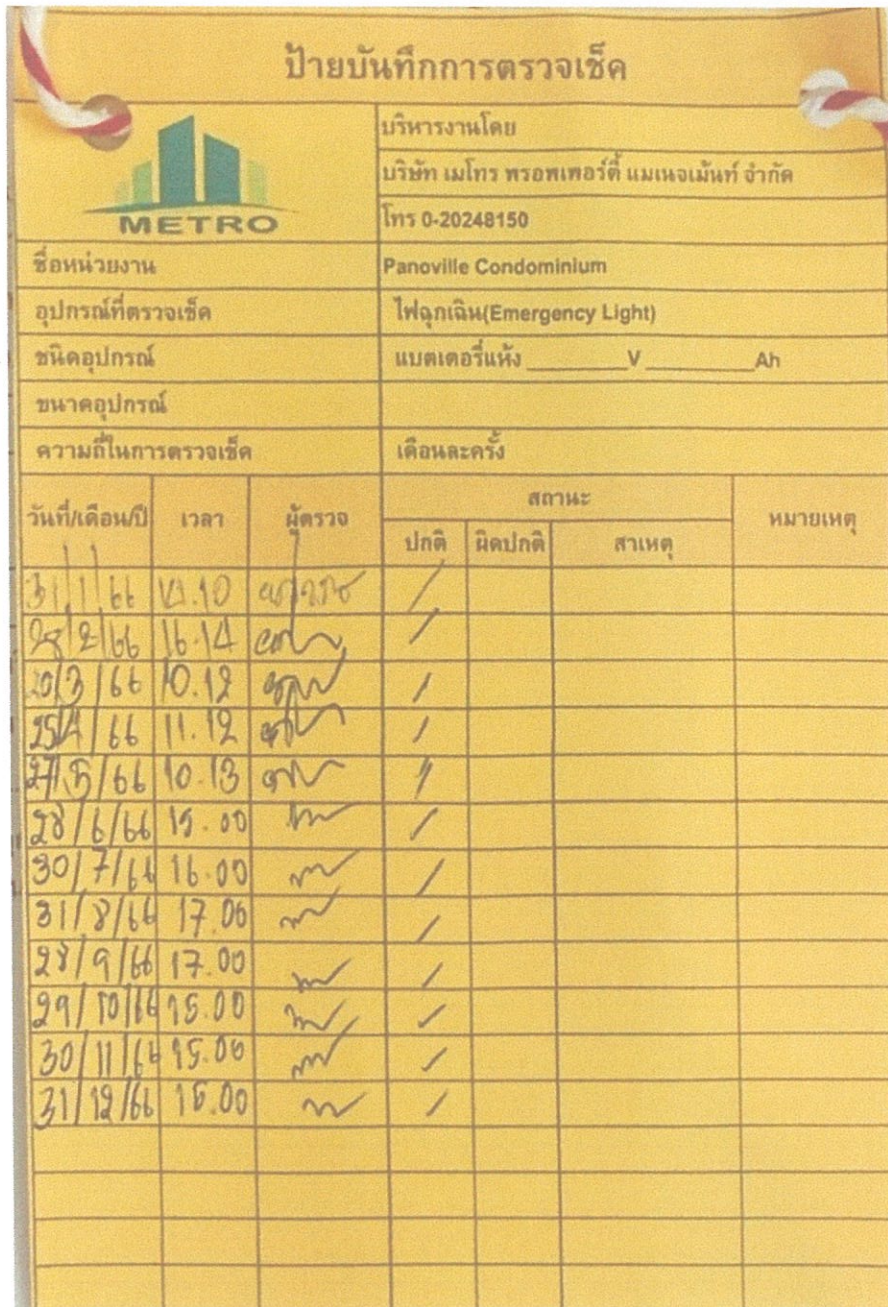 ป้ายบันทึกการตรวจเช็ค
METRO
บริหารงานโดย
บริษัท เมโทร พรอพเพอร์ตี้ แมเนจเม้นท์ จำกัด
โทร 0-20248150
ชื่อหน่วยงาน Panoville Condominium
อุปกรณ์ที่ตรวจเช็ค ไฟฉุกเฉิน(Emergency Light)
ชนิดอุปกรณ์ แบตเตอรี่แห้ง ________V________Ah
ขนาดอุปกรณ์
ความถี่ในการตรวจเช็ค เดือนละครั้ง
วันที่/เดือน/ปี เวลา ผู้ตรวจ สถานะ หมายเหตุ
ปกติ ผิดปกติ สาเหตุ
31/1/66 /
28/2/66 16.14 /
20/3/66 10.12 /
25/4/66 11.12 /
27/5/66 10.13 /
28/6/66 15.00 /
30/7/66 16.00 /
31/8/66 17.00 /
28/9/66 17.00 /
29/10/66 15.00 /
30/11/66 15.00 /
31/12/66 15.00 /